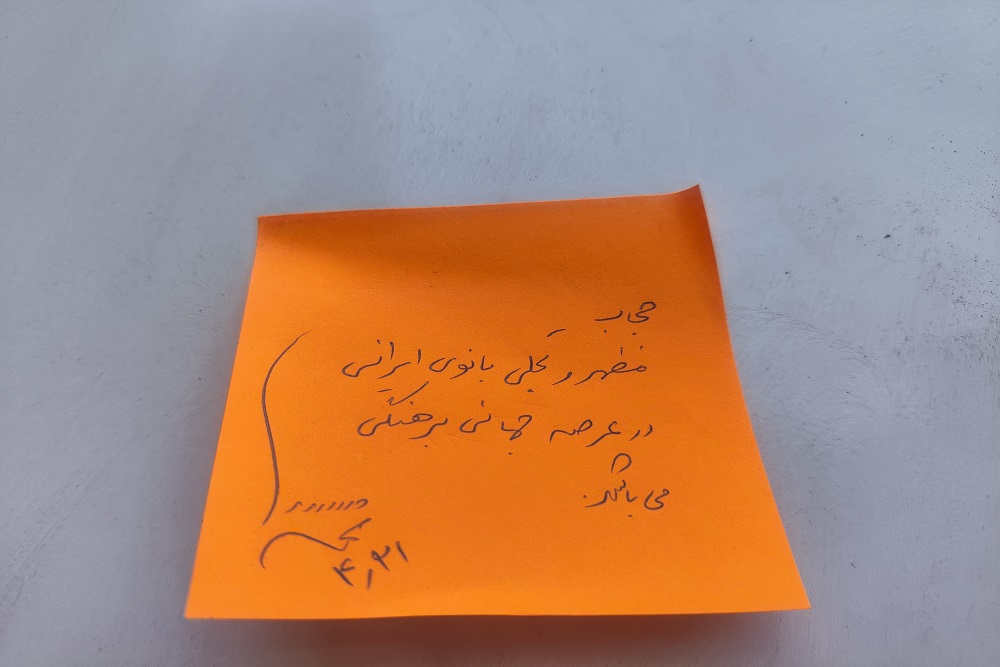 حجاب
مظهر و تجلی بانوی ایرانی
در عرصه جهانی برهنگی
می باشد.
۴٫۲۱